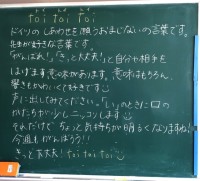 トイ トイ トイ
toi toi toi
ドイツの しあわせを 願う おまじないの言葉です。
先生が好きな言葉です。
「がんばれ!」「きっと大丈夫!」と自分や相手を
はげます意味があります。意味はもちろん、
響きもかわいくて好きです
声に出してみてください。「い」のときに口の
かたちが 少し ニッコリします
それだけで ちょっと気持ちが明るくなりますね!
今週もがんばろう!!
きっと大丈夫! toi toi toi